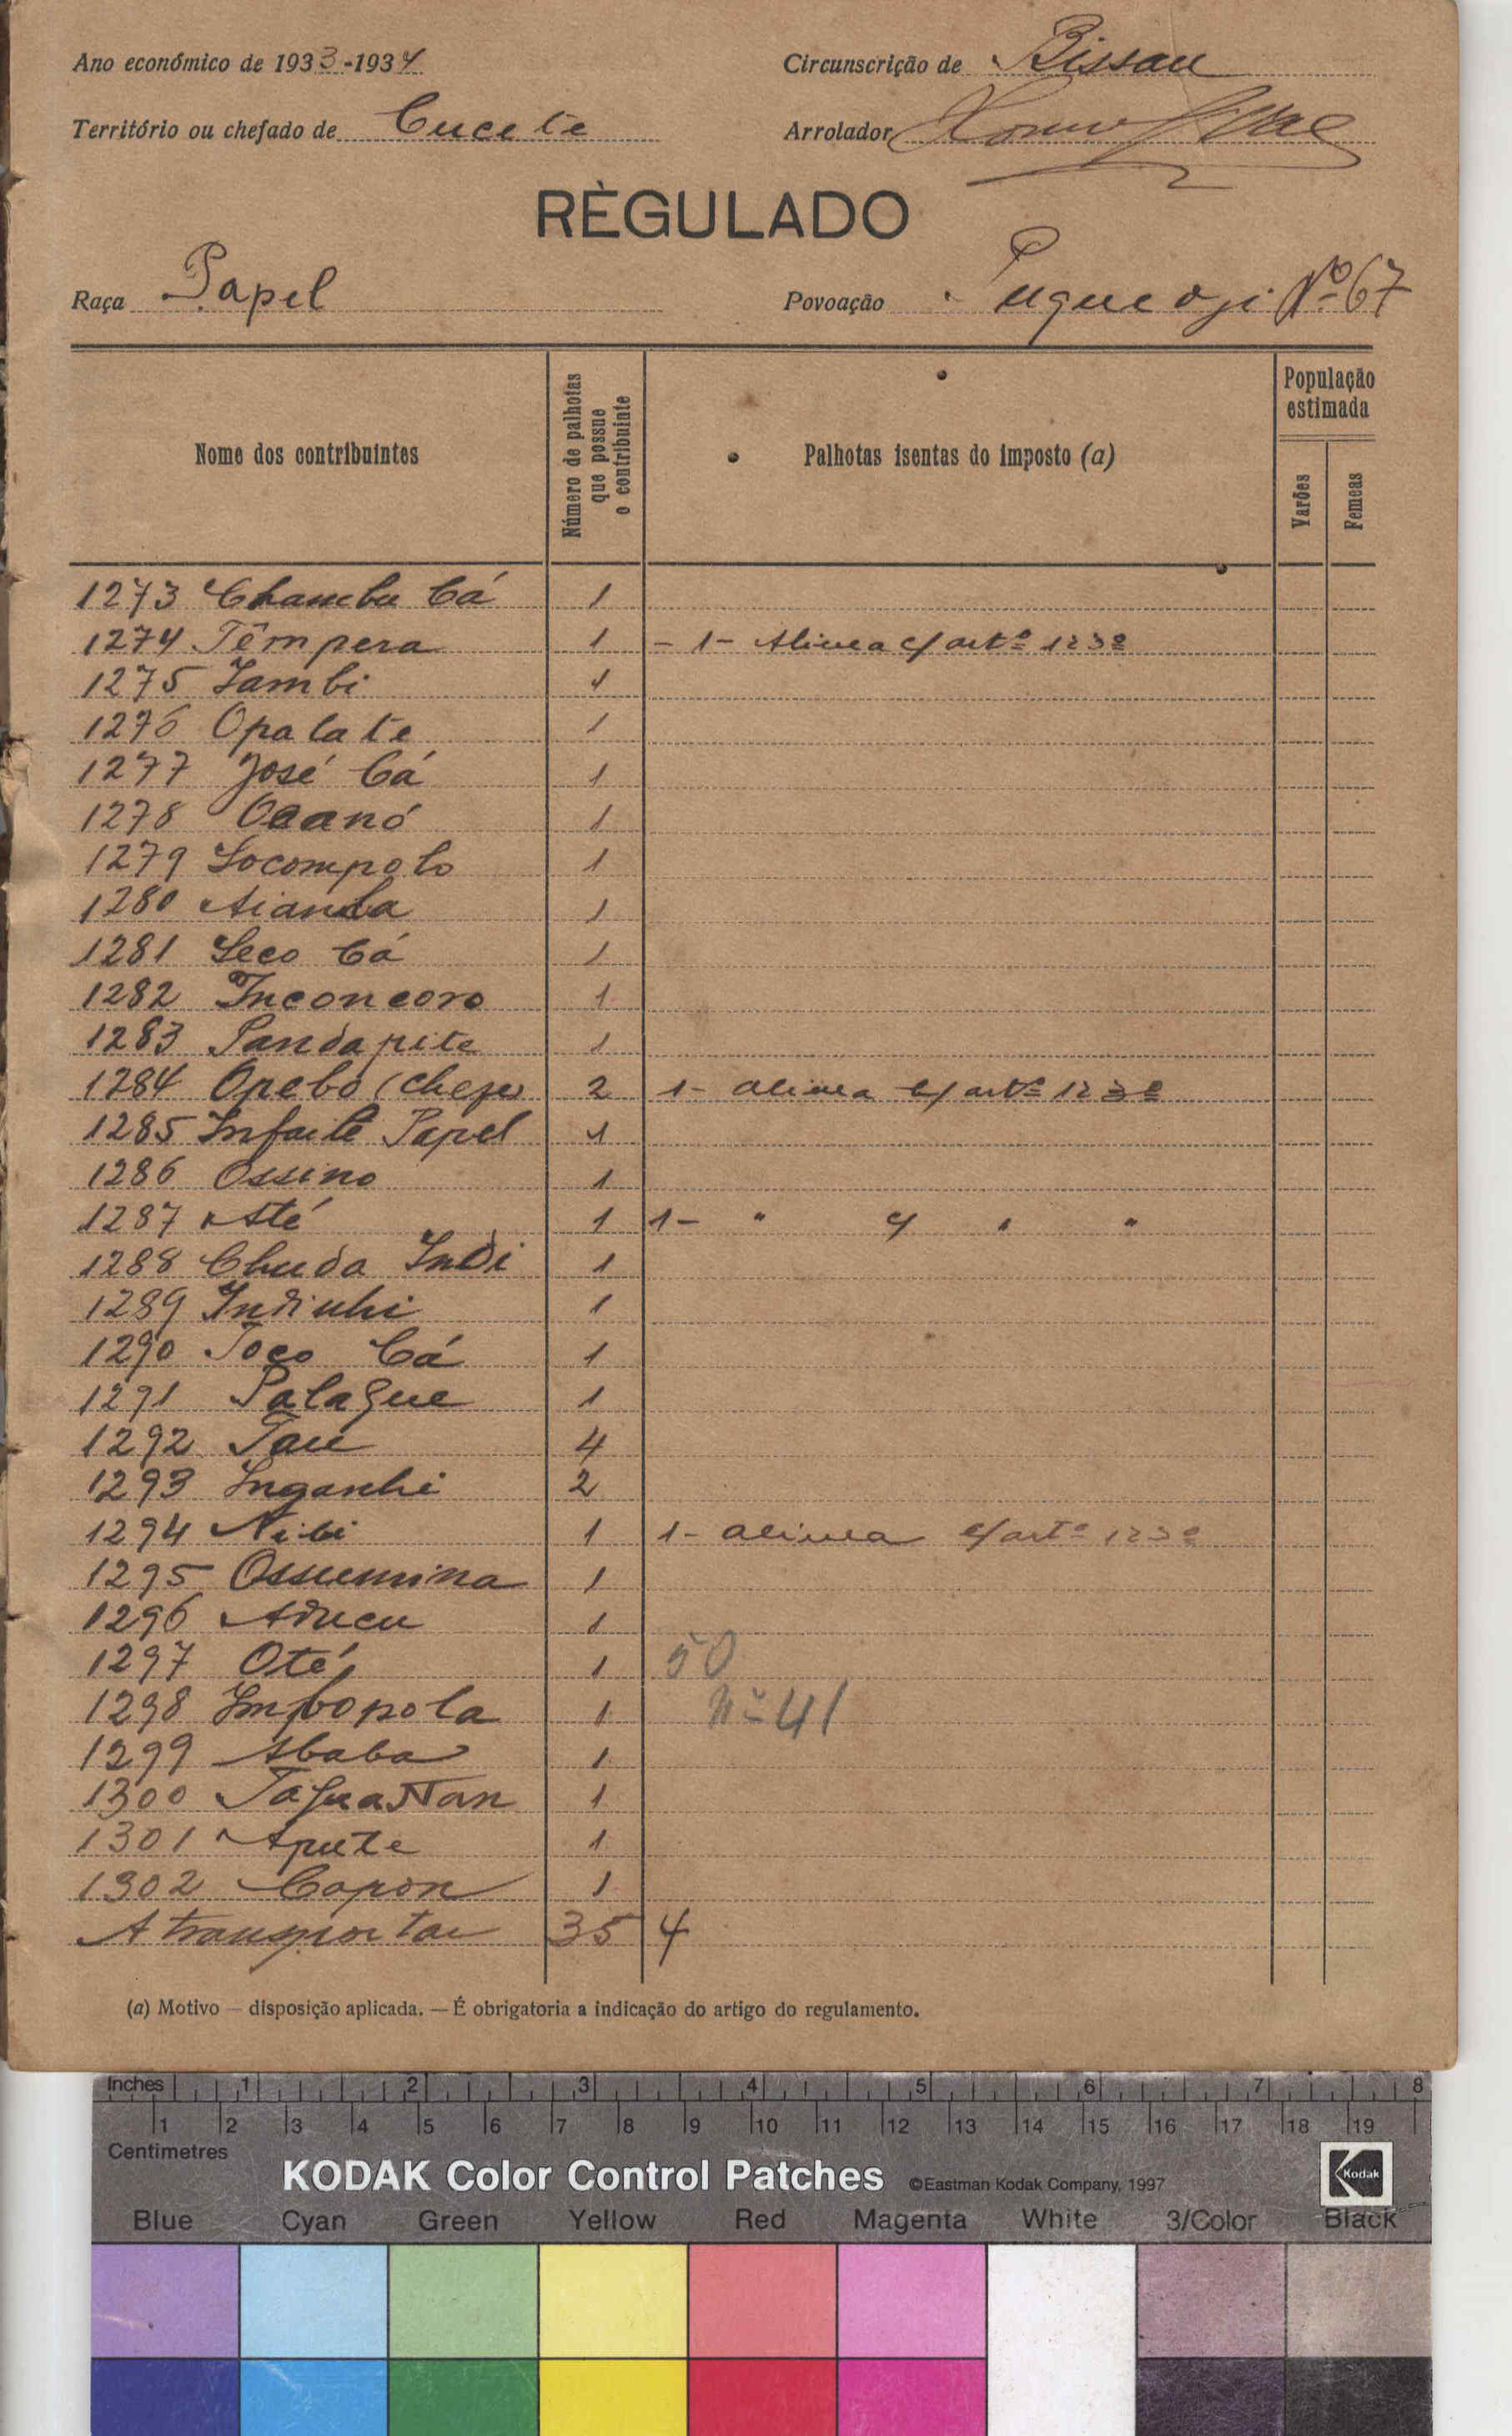 Ano económico de 1933-1934
Circunscrição de Bissau
Território ou chefado de Cucete
Arrolador
RÈGULADO
Raça Papel
Povoação Nº 67
Nome dos contribuintes
Número de palhotas que possue o contribuinte
Palhotas isentas do imposto (a)
População estimada
Varões
Femeas
1273 Chambu Cá 1
1274 Têmpera 1 - 1- Alinea c/ artº 123º
1275 Jambi 1
1276 Opalate 1
1277 José Cá 1
1278 Ocanó 1
1279 Socompolo 1
1280 Aianda 1
1281 Seco Cá 1
1282 Inconcoro 1
1283 Pandapite 1
1284 Opebó (Chefe) 2 1- alinea c/ artº 123º
1285 Infaite Papel 1
1286 Ossino 1
1287 Até 1 1- " c/ " "
1288 Chuda Indi 1
1289 Indiuhi 1
1290 Toco Cá 1
1291 Palague 1
1292 Taú 4
1293 Inganhi 2
1294 Nibi 1 1- alinea c/ artº 123º
1295 Ossumina 1
1296 Aducu 1
1297 Oté 1 50
1298 Impopola 1 Nº 41
1299 Ababa 1
1300 1
1301 Apute 1
1302 Capon 1
A transportar 35 4
(a) Motivo — disposição aplicada. — É obrigatoria a indicação do artigo do regulamento.
Inches 1 2 3 4 5 6 7 8
1 2 3 4 5 6 7 8 9 10 11 12 13 14 15 16 17 18 19
Centimetres
KODAK Color Control Patches ©Eastman Kodak Company, 1997 Kodak
Blue Cyan Green Yellow Red Magenta White 3/Color Black